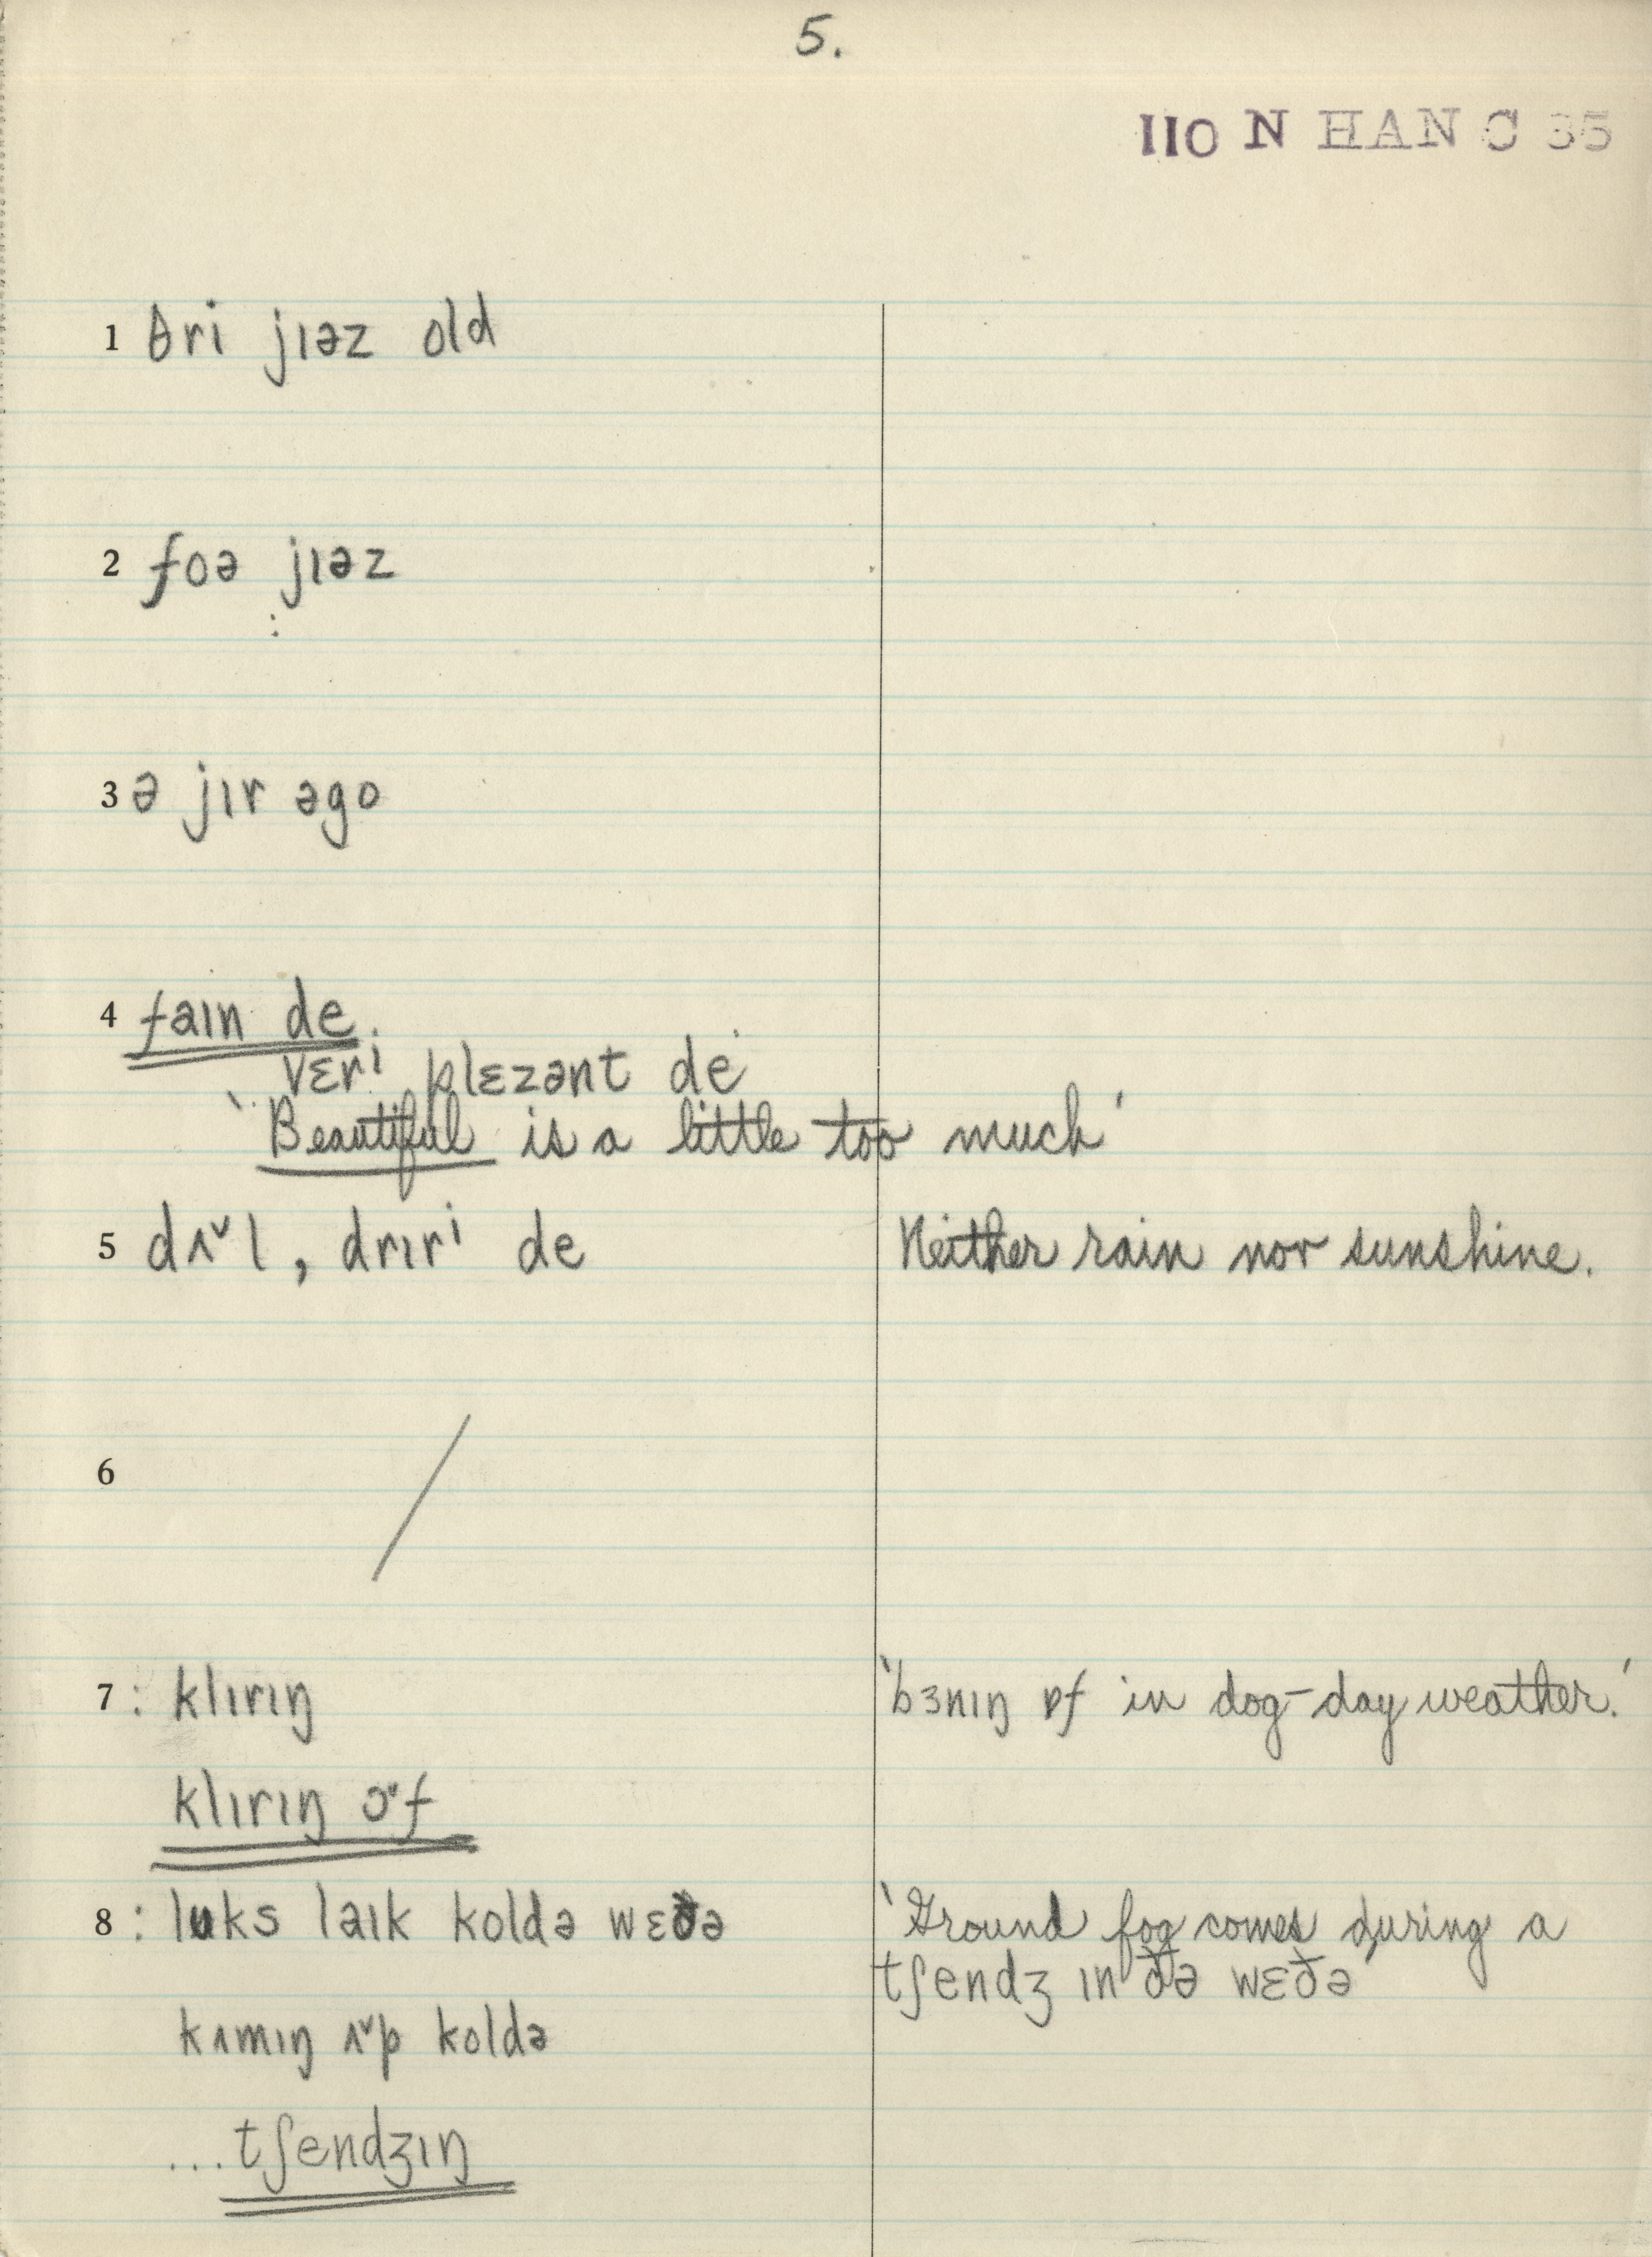 5.
110 N HAN C 35
1 θri jɪəz old
2 foə jɪəz
:
3 ə jɪr əgo
4 faɪn de.
vɛrⁱ plɛzənt de
'Beautiful is a little too much'
5 dʌ˅l, drɪrⁱ de Neither rain nor sunshine.
6 /
7 : klɪrɪŋ 'bɜnɪŋ ɒf in dog-day weather.'
klɪrɪŋ ɔ˅f
8 : lʊks laɪk koldə wɛðə 'Ground fog comes during a
tʃendʒ ɪn ðə wɛðə'
kʌmɪŋ ʌ˅p koldə
...tʃendʒɪŋ